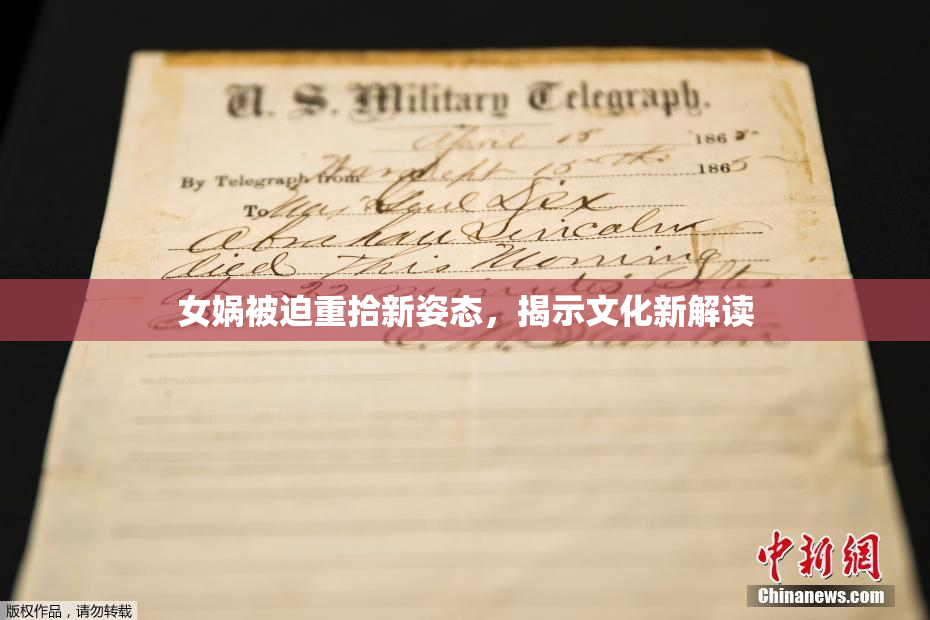 U. S. Military Telegraph.
April 15 1865
By Telegraph from War Dept 15th 1865
To Maj Genl Dix
Abraham Lincoln
died This Morning
at 22 minutes after
女娲被迫重拾新姿态，揭示文化新解读
中新网
Chinanews.com
版权作品，请勿转载